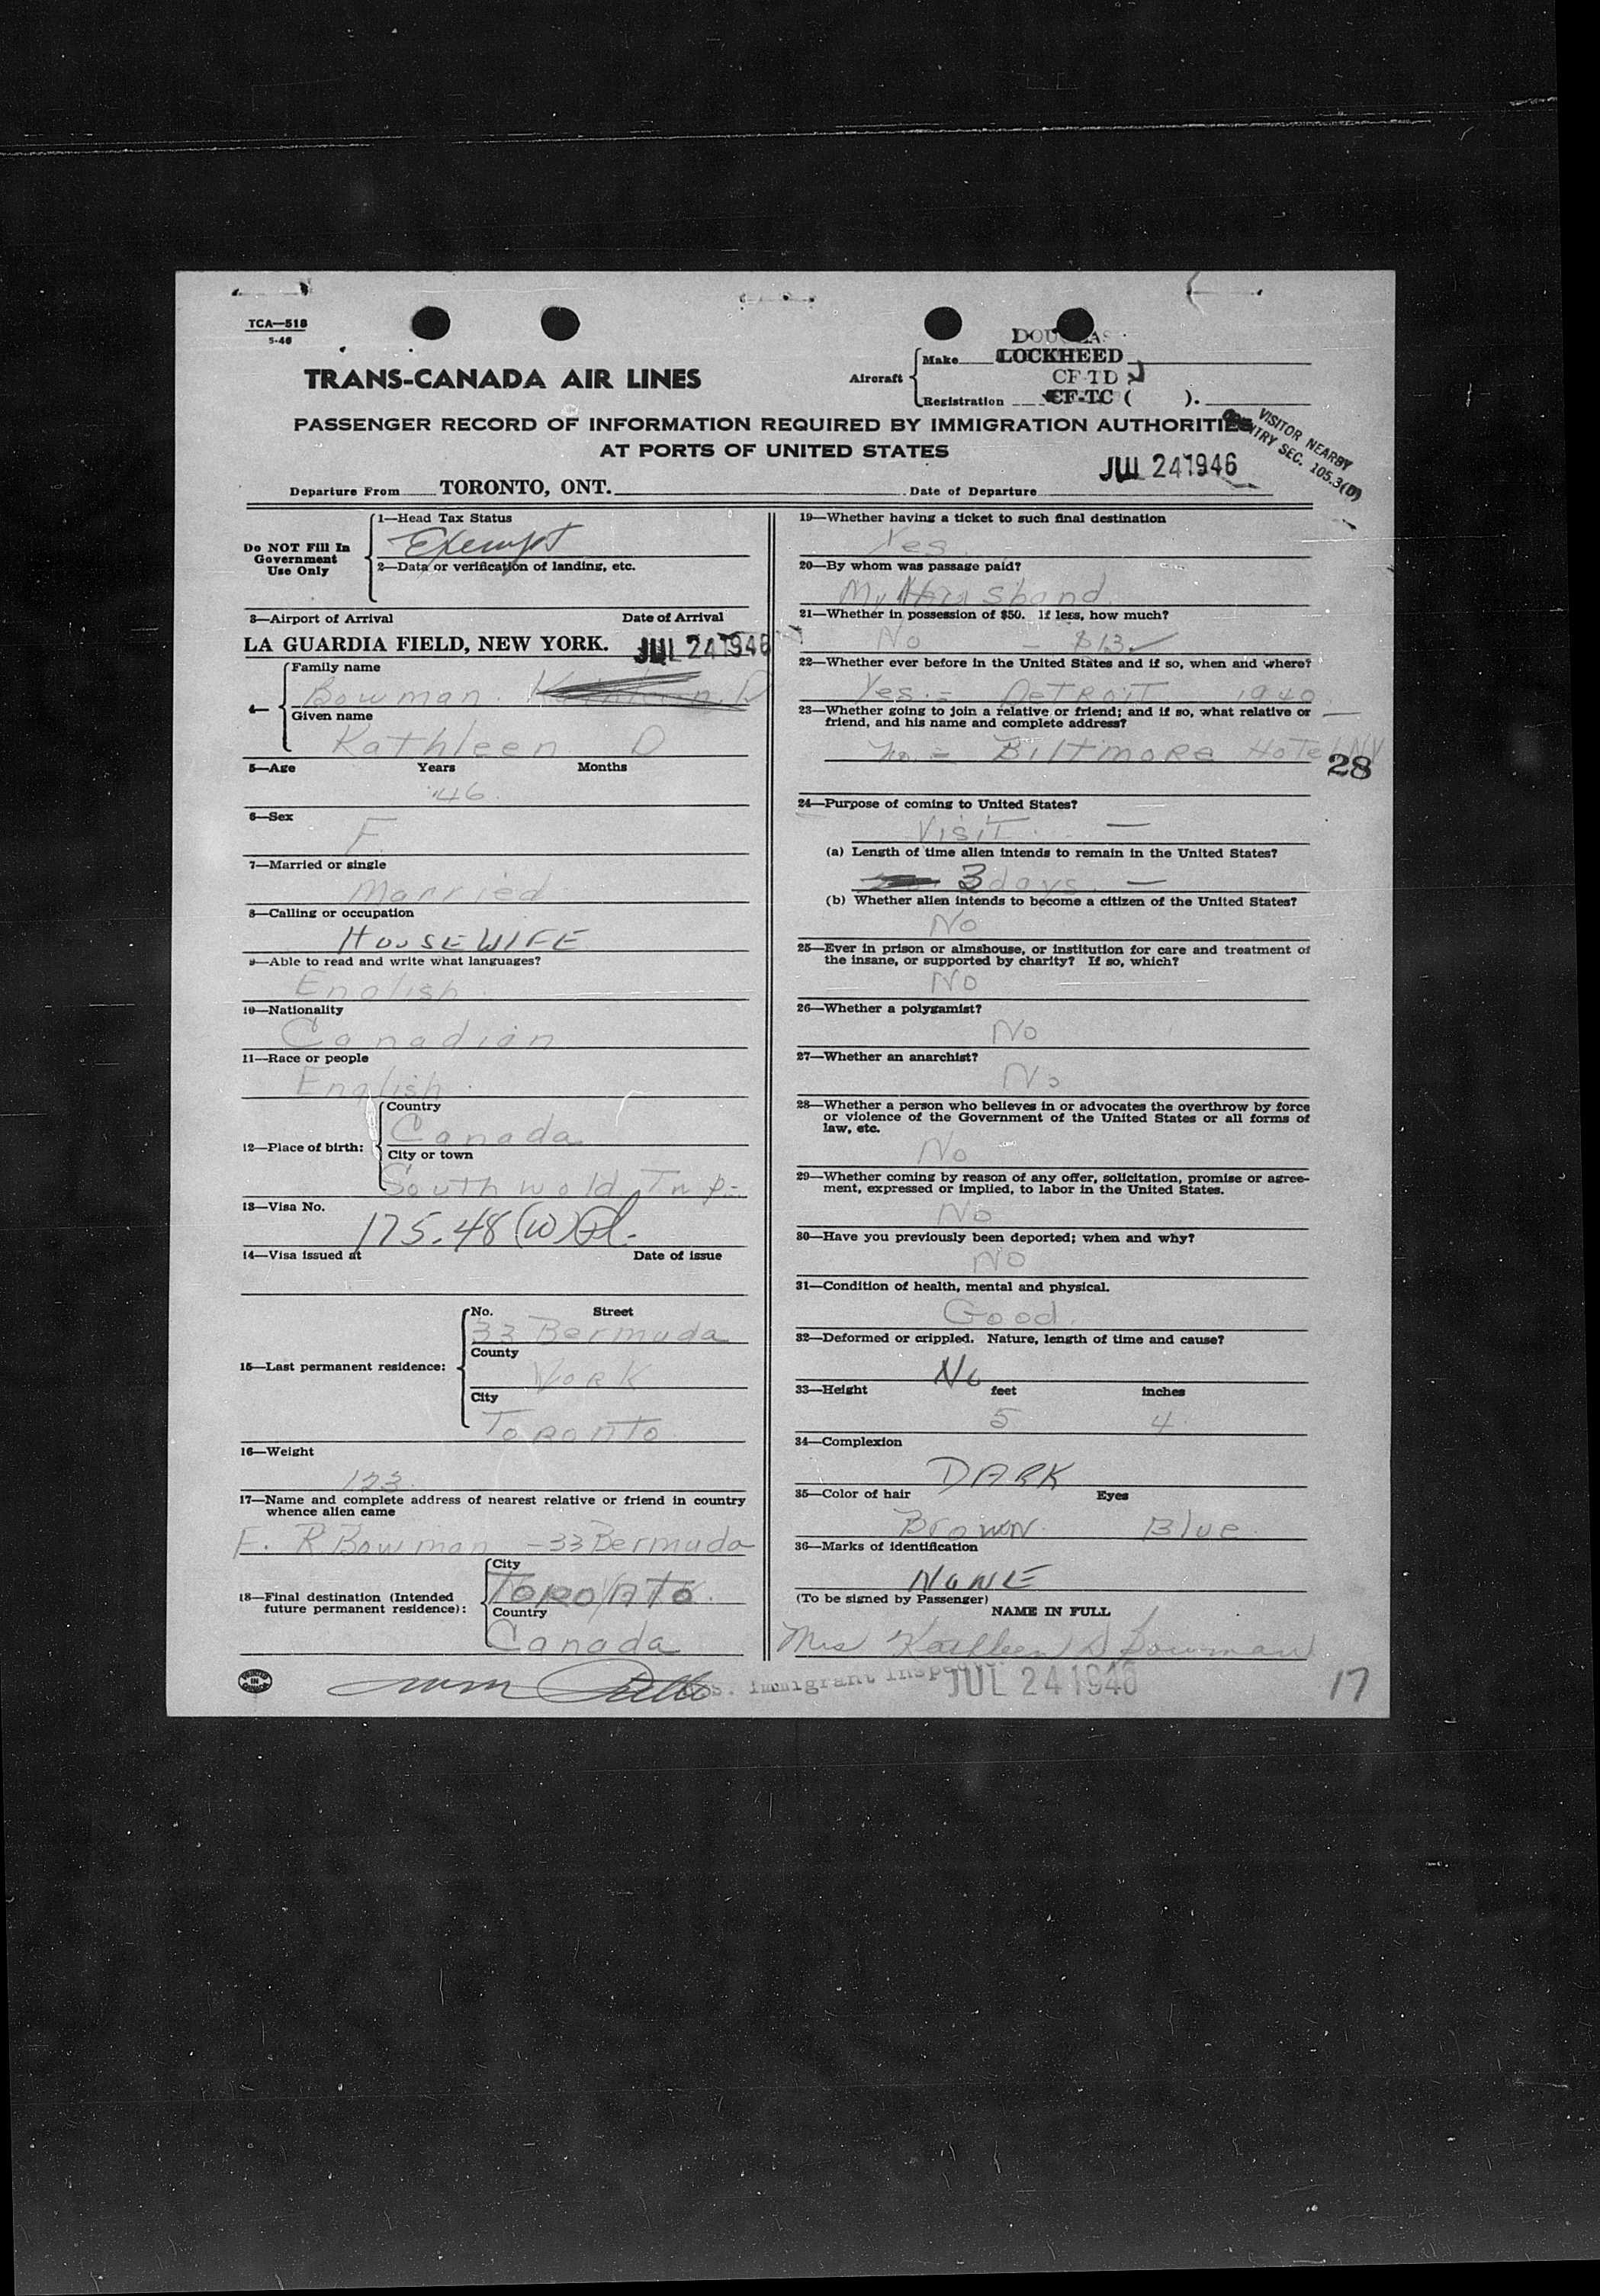 TCA—518
5-46
DOUGLAS
Make LOCKHEED
TRANS-CANADA AIR LINES
Aircraft
CF-TD
Registration CF-TC ( ).
PASSENGER RECORD OF INFORMATION REQUIRED BY IMMIGRATION AUTHORITIES
AT PORTS OF UNITED STATES
VISITOR NEARBY
COUNTRY SEC. 105.3(D)
Departure From TORONTO, ONT. Date of Departure JUL 24 1946
Do NOT Fill In
Government
Use Only
1—Head Tax Status
Exempt
2—Data or verification of landing, etc.
3—Airport of Arrival Date of Arrival
LA GUARDIA FIELD, NEW YORK. JUL 24 1946
4—
Family name
Bowman. Kathleen D
Given name
Kathleen D
5—Age Years Months
46
6—Sex
F
7—Married or single
Married
8—Calling or occupation
HOUSEWIFE
9—Able to read and write what languages?
English
10—Nationality
Canadian
11—Race or people
English
12—Place of birth:
Country
Canada
City or town
Southwold Twp-
13—Visa No.
175.48(W)
14—Visa issued at Date of issue
15—Last permanent residence:
No. Street
33 Bermuda
County
YORK
City
TORONTO
16—Weight
123
17—Name and complete address of nearest relative or friend in country
whence alien came
F. R Bowman - 33 Bermuda
18—Final destination (Intended
future permanent residence):
City
TORONTO
Country
Canada
PRINTED
IN
CANADA
19—Whether having a ticket to such final destination
Yes
20—By whom was passage paid?
My Husband
21—Whether in possession of $50. If less, how much?
No - $13
22—Whether ever before in the United States and if so, when and where?
Yes - DETROIT 1940
23—Whether going to join a relative or friend; and if so, what relative or
friend, and his name and complete address?
no. - BILTMORE HOTEL NY
28
24—Purpose of coming to United States?
VISIT —
(a) Length of time alien intends to remain in the United States?
3 days —
(b) Whether alien intends to become a citizen of the United States?
No
25—Ever in prison or almshouse, or institution for care and treatment of
the insane, or supported by charity? If so, which?
No
26—Whether a polygamist?
No
27—Whether an anarchist?
No
28—Whether a person who believes in or advocates the overthrow by force
or violence of the Government of the United States or all forms of
law, etc.
No
29—Whether coming by reason of any offer, solicitation, promise or agree-
ment, expressed or implied, to labor in the United States.
No
30—Have you previously been deported; when and why?
NO
31—Condition of health, mental and physical.
Good.
32—Deformed or crippled. Nature, length of time and cause?
No
33—Height feet inches
5 4
34—Complexion
DARK
35—Color of hair Eyes
Brown Blue
36—Marks of identification
NONE
(To be signed by Passenger)
NAME IN FULL
Mrs Kathleen D Bowman
U.S. Immigrant Inspector
JUL 24 1946
17